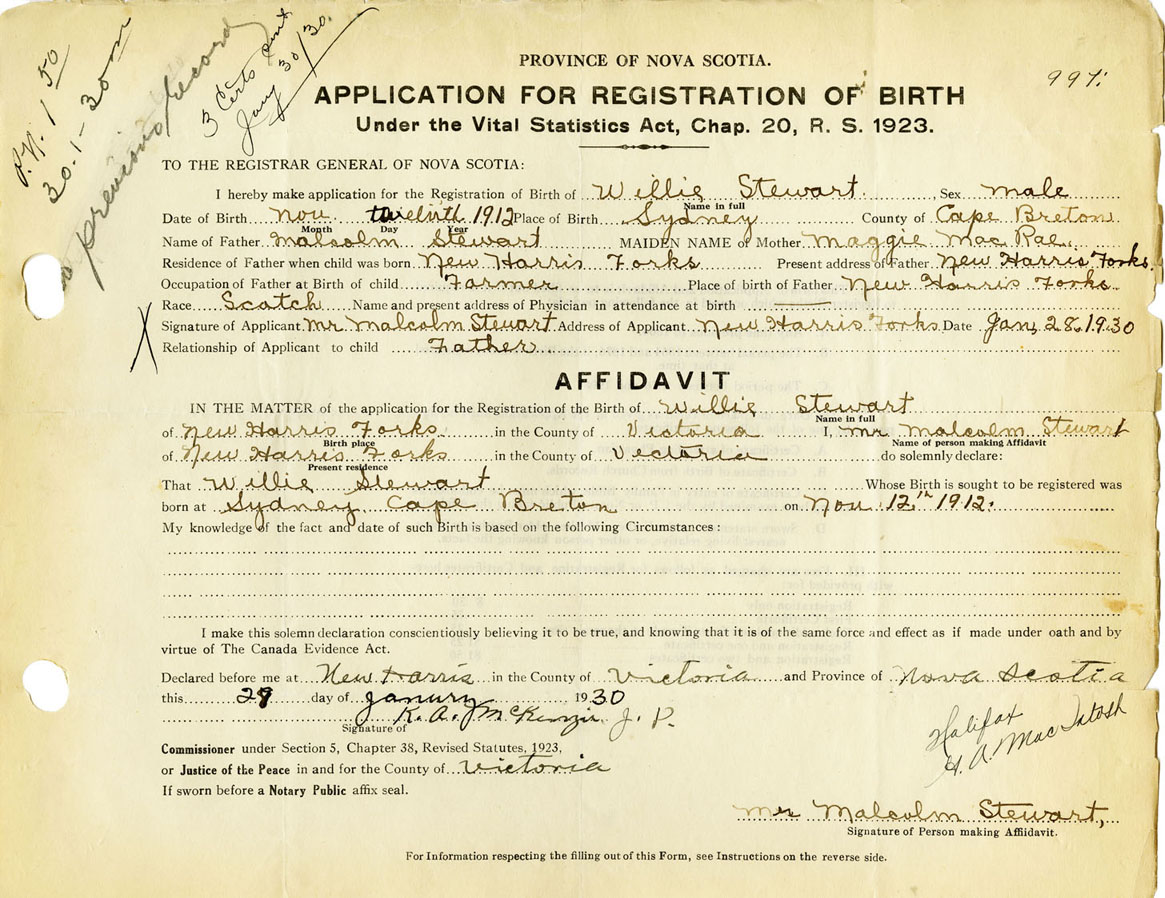 P.N. 1 50
30-1-30
no previous record
3 Certs sent
Jany 30/30.
997.
PROVINCE OF NOVA SCOTIA.
APPLICATION FOR REGISTRATION OF BIRTH
Under the Vital Statistics Act, Chap. 20, R. S. 1923.
TO THE REGISTRAR GENERAL OF NOVA SCOTIA:
I hereby make application for the Registration of Birth of Willie Stewart, Sex male
Name in full
Date of Birth Nov twelvth 1912 Place of Birth Sydney County of Cape Breton
Month Day Year
Name of Father Malsolm Stewart MAIDEN NAME of Mother Maggie Mac Rae
Residence of Father when child was born New Harris Forks Present address of Father New Harris Forks.
Occupation of Father at Birth of child Farmer Place of birth of Father New Harris Forks
Race Scatch Name and present address of Physician in attendance at birth
X Signature of Applicant Mr Malcolm Stewart Address of Applicant New Harris Forks Date Jan, 28, 1930
Relationship of Applicant to child Father
AFFIDAVIT
IN THE MATTER of the application for the Registration of the Birth of Willie Stewart
Name in full
of New Harris Forks in the County of Victoria I, Mr Malcolm Stewart
Birth place Name of person making Affidavit
of New Harris Forks in the County of Vectoria do solemnly declare:
Present residence
That Willie Stewart Whose Birth is sought to be registered was
born at Sydney Cape Breton on Nov 12th 1912.
My knowledge of the fact and date of such Birth is based on the following Circumstances :
I make this solemn declaration conscientiously believing it to be true, and knowing that it is of the same force and effect as if made under oath and by
virtue of The Canada Evidence Act.
Declared before me at New Harris in the County of Victoria and Province of Nova Scotia
this 29 day of Janury 1930
K. A. McKenzie J. P.
Signature of
Commissioner under Section 5, Chapter 38, Revised Statutes, 1923,
or Justice of the Peace in and for the County of Victoria
If sworn before a Notary Public affix seal.
Halifax
H. A. MacIntosh
Mr Malcolm Stewart,
Signature of Person making Affidavit.
For Information respecting the filling out of this Form, see Instructions on the reverse side.